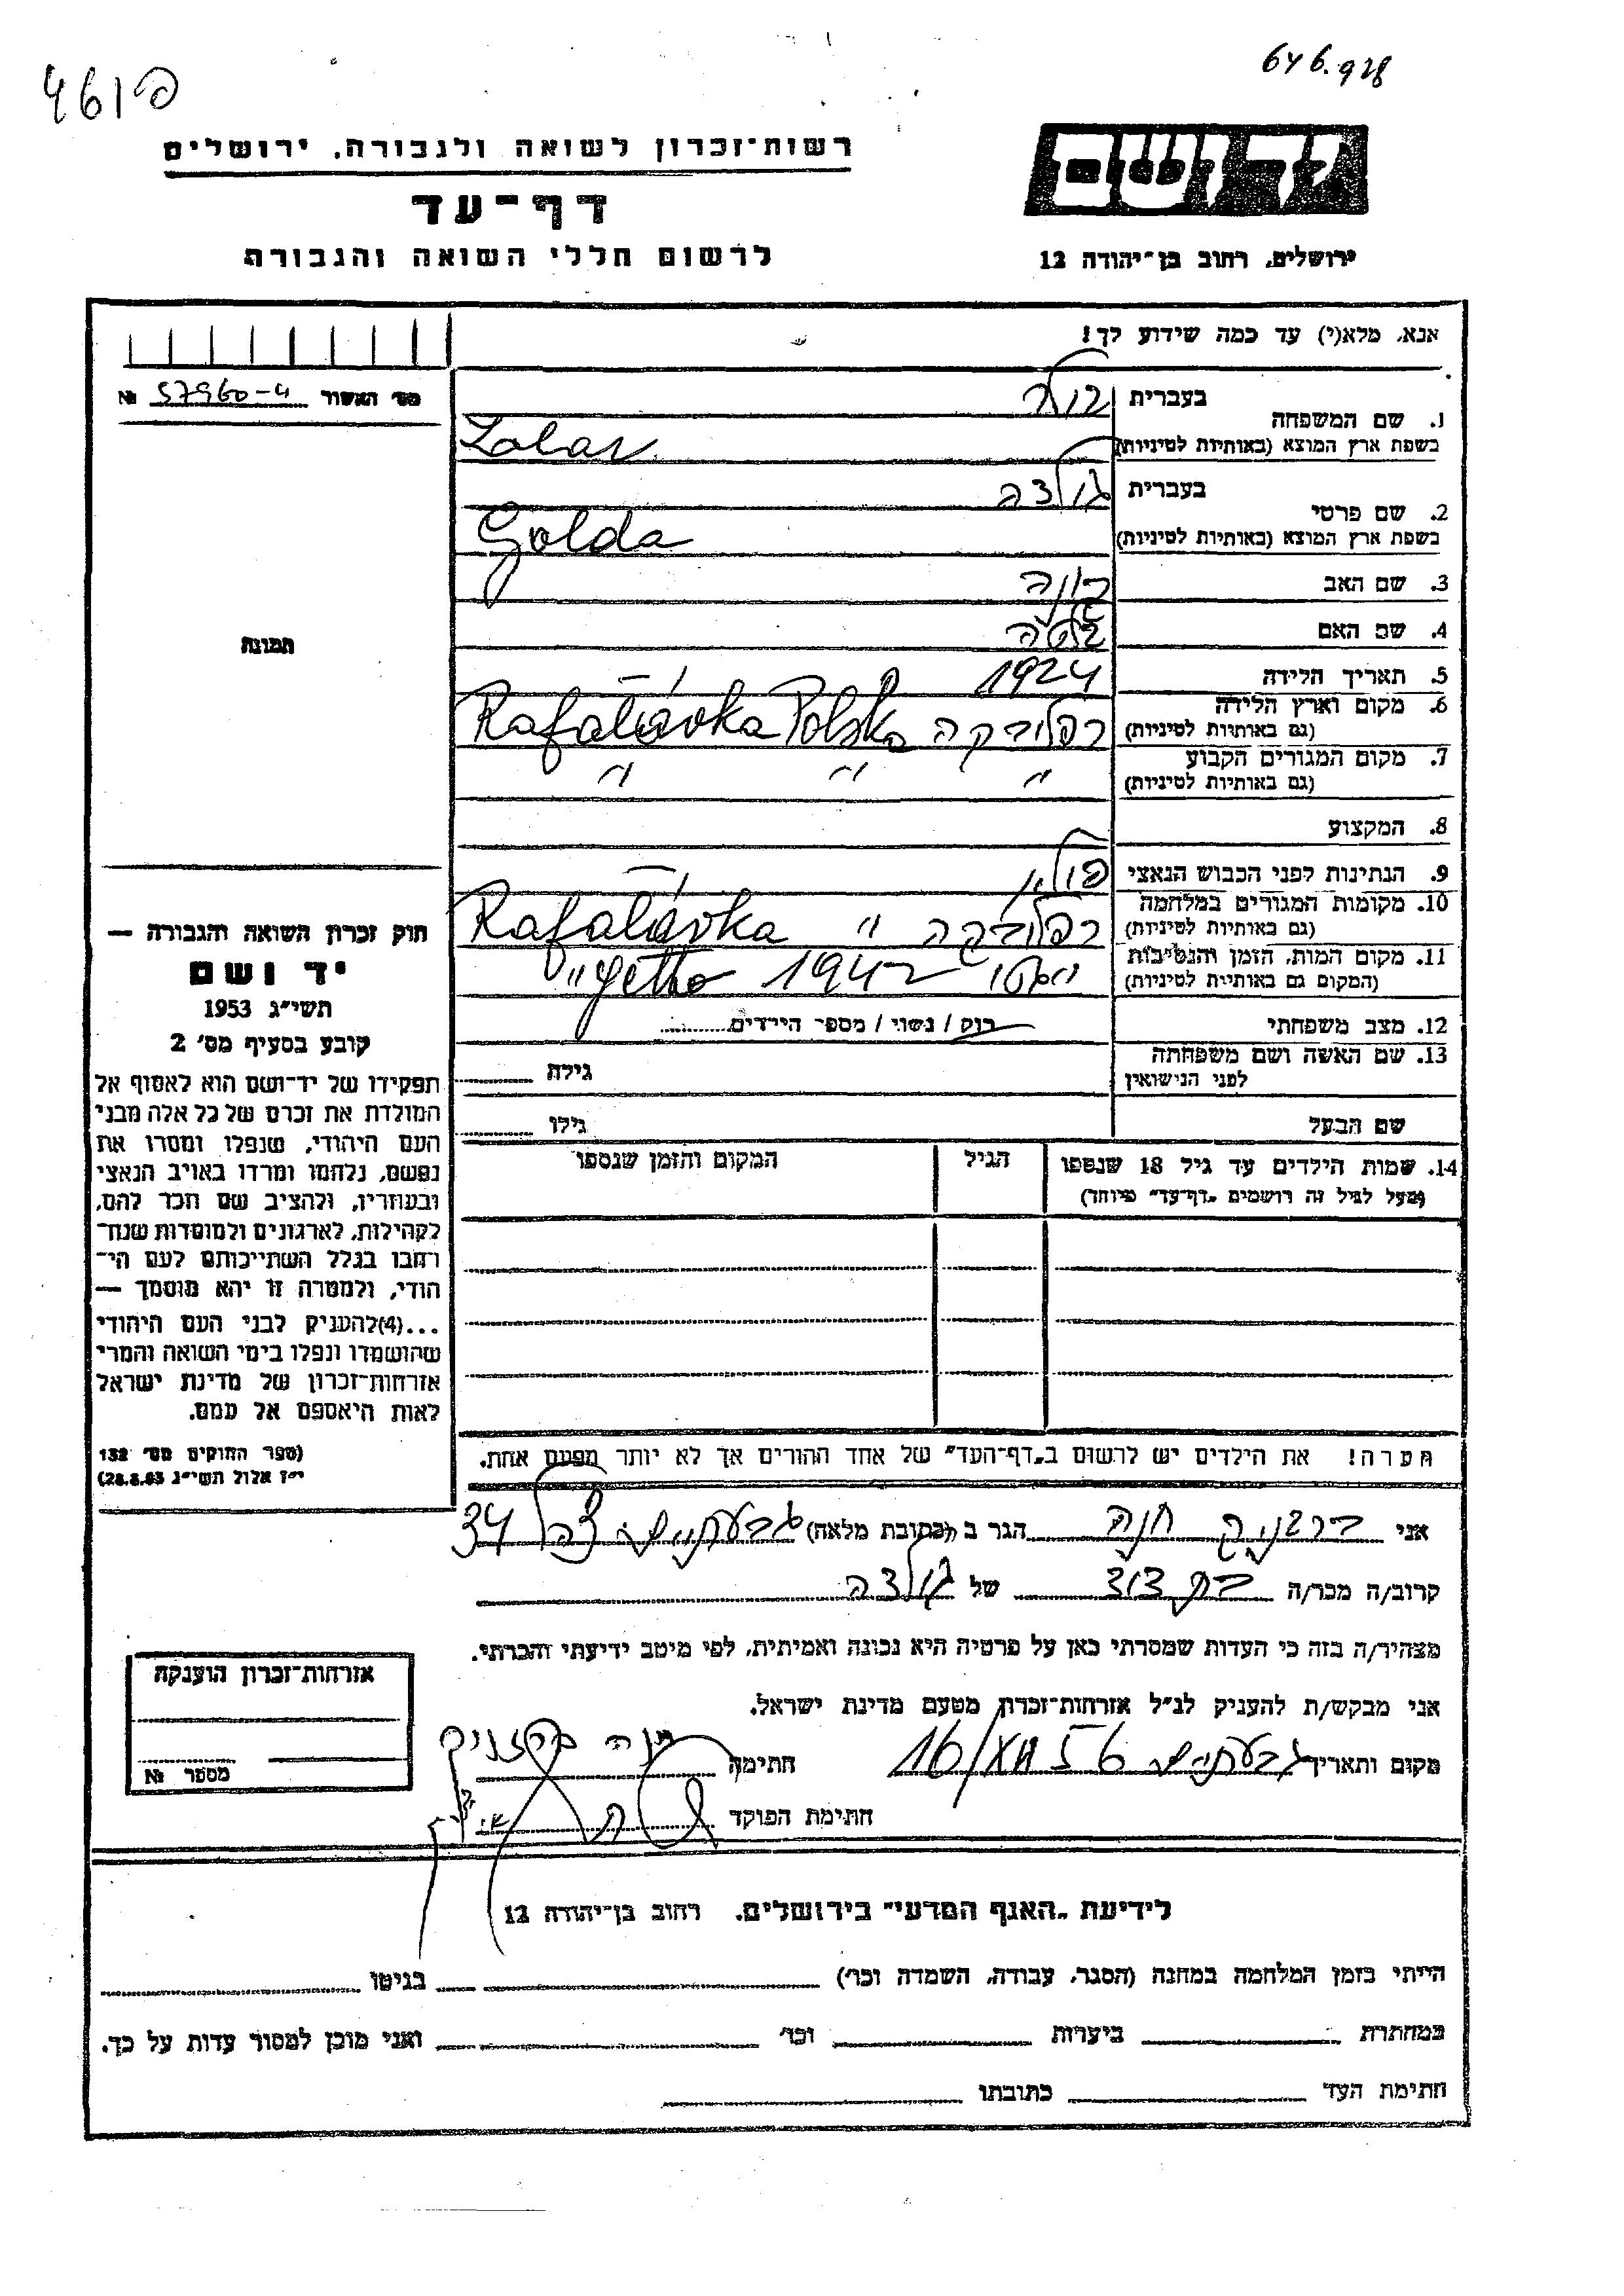 646.928
461 פ
רשות־זכרון לשואה ולגבורה, ירושלים
דף־עד
לרשום חללי השואה והגבורה
יד ושם
ירושלים, רחוב בן־יהודה 12
אנא, מלא(י) עד כמה שידוע לך!
מס' האשור 57960-4 №
1. שם המשפחה
בעברית
בשפת ארץ המוצא (באותיות לטיניות) Zolar
2. שם פרטי
בעברית גולדה
בשפת ארץ המוצא (באותיות לטיניות) Golda
3. שם האב
4. שם האם
5. תאריך הלידה 1924
6. מקום וארץ הלידה רפלובקה Rafałówka Polska
(גם באותיות לטיניות)
7. מקום המגורים הקבוע " " "
(גם באותיות לטיניות)
8. המקצוע
9. הנתינות לפני הכבוש הנאצי פולין
10. מקומות המגורים במלחמה רפלובקה " Rafałówka
(גם באותיות לטיניות)
11. מקום המות, הזמן והנסיבות גטו 1942 getto "
(המקום גם באותיות לטיניות)
12. מצב משפחתי רוק / נשוי / מספר הילדים
13. שם האשה ושם משפחתה
לפני הנישואין
גילה
שם הבעל גילו
14. שמות הילדים עד גיל 18 שנספו הגיל המקום והזמן שנספו
(מעל לגיל זה רושמים „דף־עד" מיוחד)
הערה! את הילדים יש לרשום ב„דף־העד" של אחד ההורים אך לא יותר מפעם אחת.
תמונה
חוק זכרון השואה והגבורה —
יד ושם
תשי"ג 1953
קובע בסעיף מס' 2
תפקידו של יד־ושם הוא לאסוף אל
המולדת את זכרם של כל אלה מבני
העם היהודי, שנפלו ומסרו את
נפשם, נלחמו ומרדו באויב הנאצי
ובעוזריו, ולהציב שם וזכר להם,
לקהילות, לארגונים ולמוסדות שנח־
רחבו בגלל השתייכותם לעם הי־
הודי, ולמטרה זו יהא מוסמך —
...(4)להעניק לבני העם היהודי
שהושמדו ונפלו בימי השואה והמרי
אזרחות־זכרון של מדינת ישראל
לאות היאספם אל עמם.
(ספר החוקים מס' 132
י"ז אלול תשי"ג 28.8.53)
אני ברזניק חנה הגר ב (כתובת מלאה) גבעתיים צה"ל 34
קרוב/ה מכר/ה בת דוד של גולדה
מצהיר/ה בזה כי העדות שמסרתי כאן על פרטיה היא נכונה ואמיתית, לפי מיטב ידיעתי והכרתי.
אני מבקש/ת להעניק לנ"ל אזרחות־זכרון מטעם מדינת ישראל.
מקום ותאריך גבעתיים 16/XII 56 חתימה חנה ברזניק
חתימת הפוקד
אזרחות־זכרון הוענקה
מספר №
לידיעת „האגף המדעי" בירושלים, רחוב בן־יהודה 12
הייתי בזמן המלחמה במחנה (הסגר, עבודה, השמדה וכו') בגיטו
במחתרת ביערות וכו' ואני מוכן למסור עדות על כך.
חתימת העד כתובתו